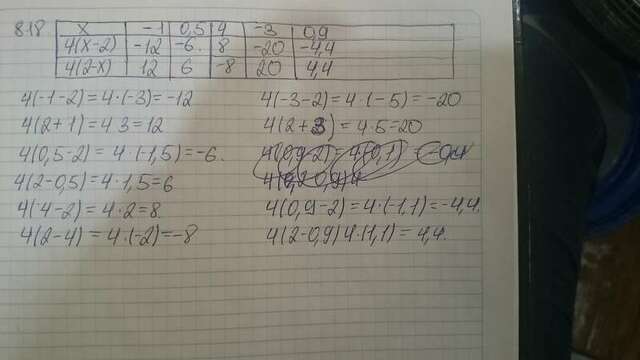 x -1 0,5 4 -3 0,9
4(x-2) -12 -6. 8 -20 -4,4
4(2-x) 12 6 -8 20 4,4
4(-1-2)=4·(-3)=-12
4(2+1)=4·3=12
4(0,5-2)=4·(-1,5)=-6.
4(2-0,5)=4·1,5=6
4(4-2)=4·2=8.
4(2-4)=4·(-2)=-8
4(-3-2)=4·(-5)=-20
4(2+3)=4·5=20
4(0,9-2)=4·(-1,1)=-4,4.
4(2-0,9)4·1,1)=4,4.